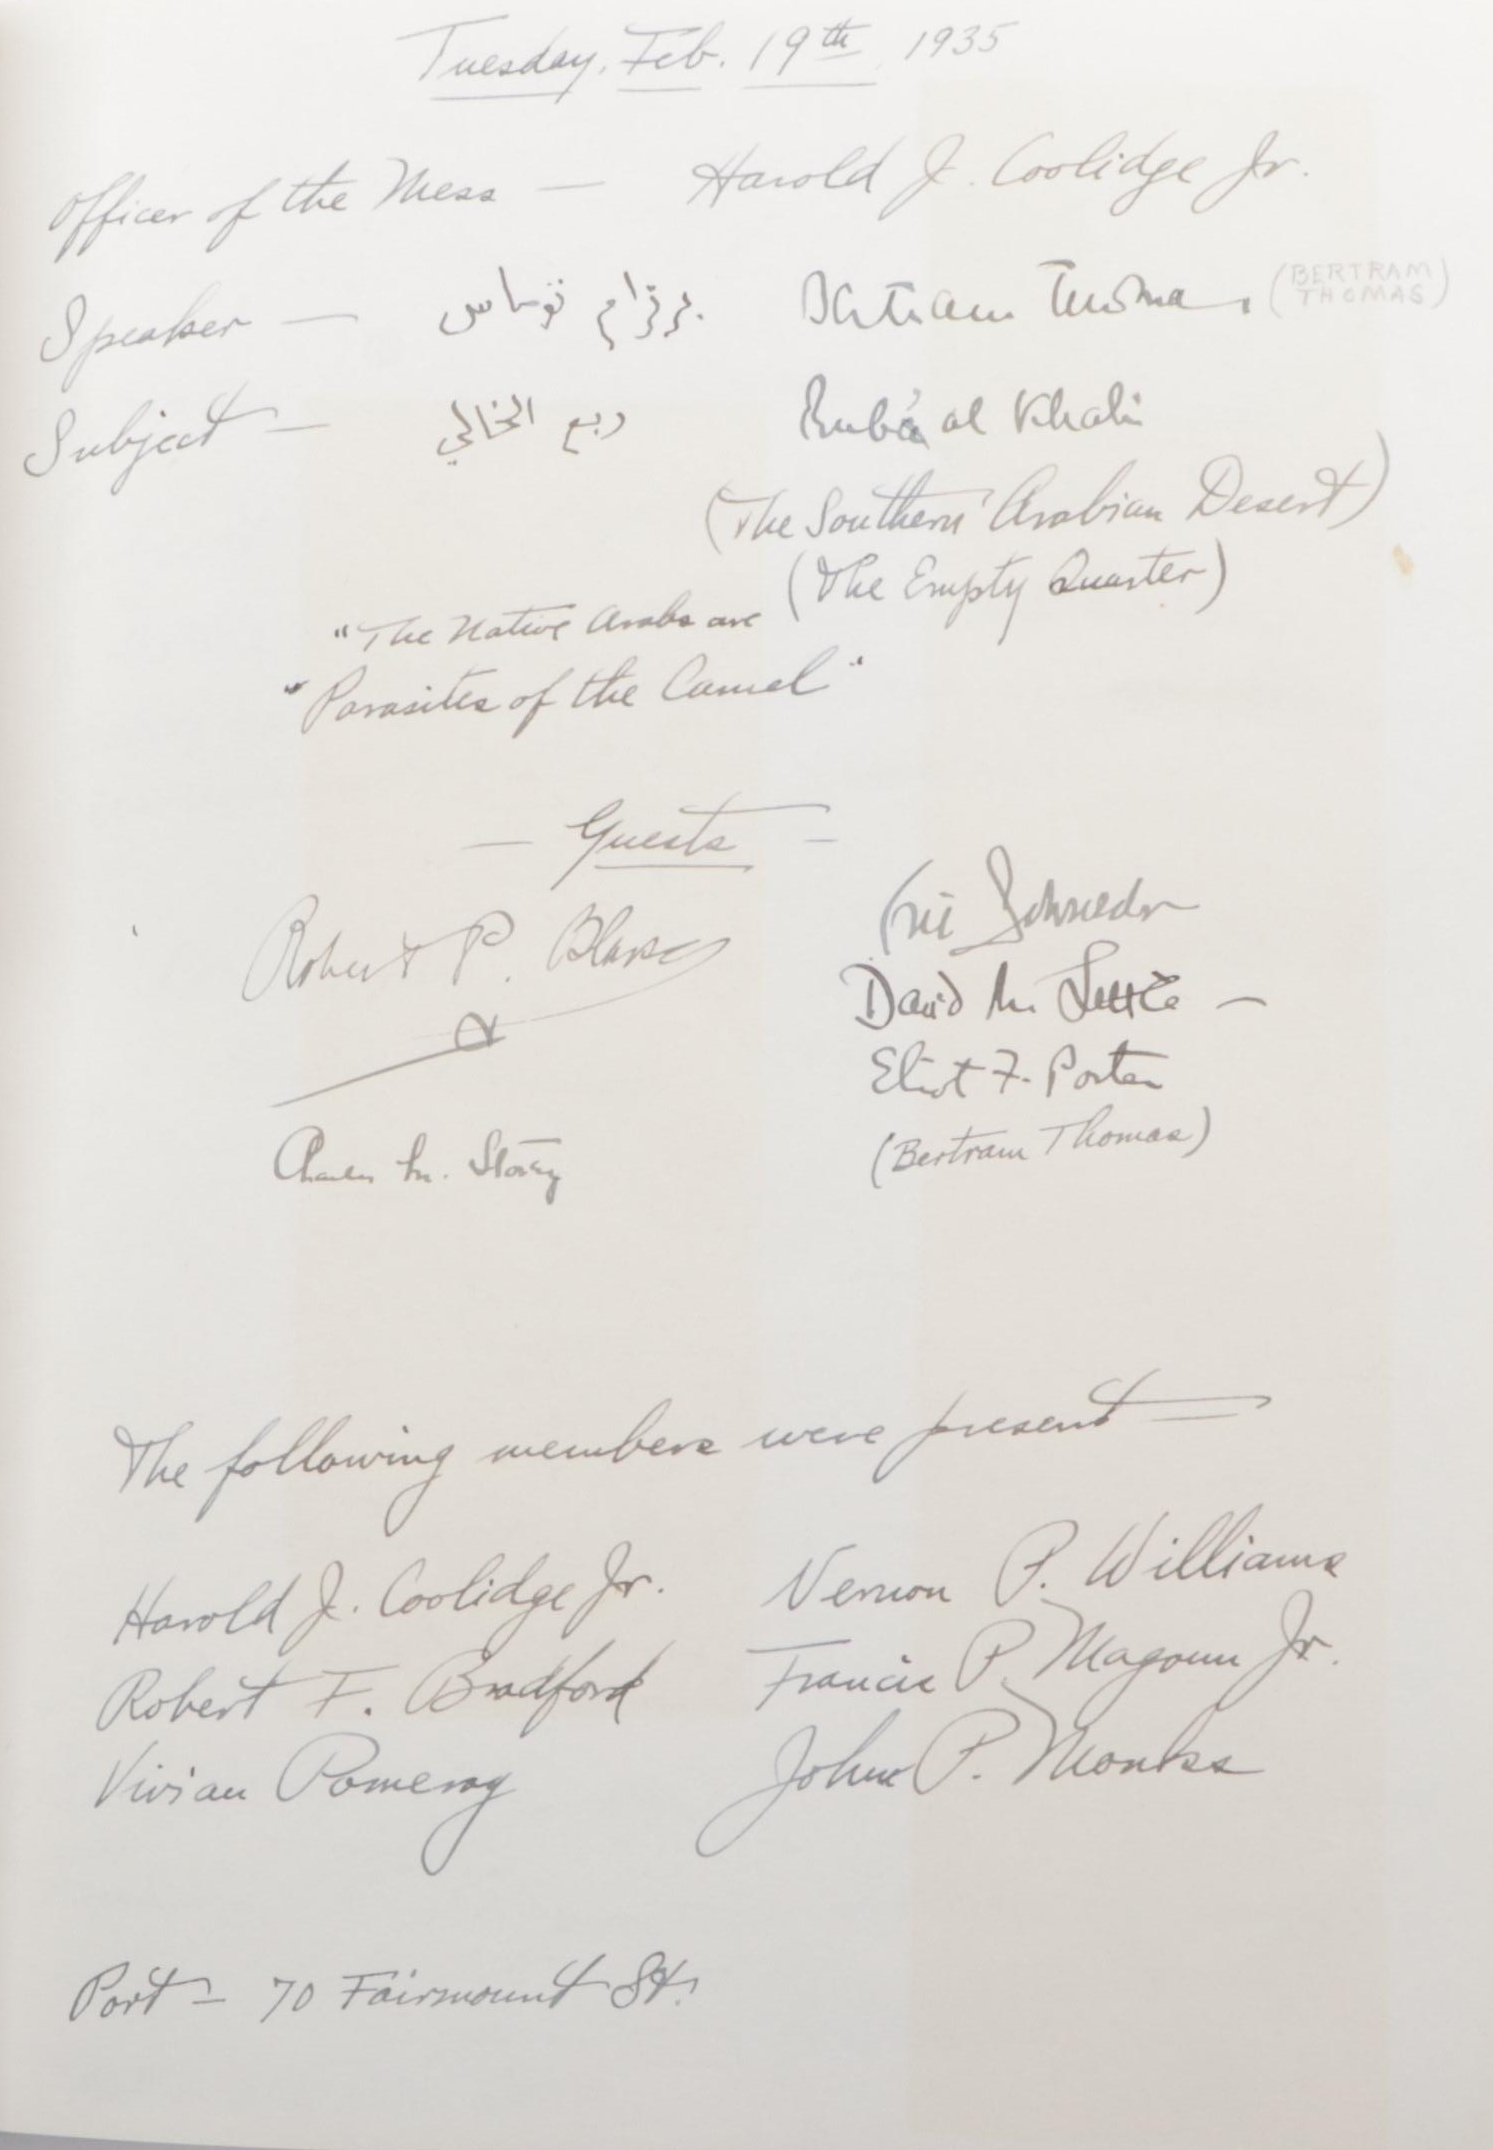 Tuesday, Feb. 19th 1935
Officer of the Mess — Harold J. Coolidge Jr.
Speaker — برترام توماس Bertram Thomas (BERTRAM THOMAS)
Subject — ربع الخالي Ruba al Khali
(The Southern Arabian Desert)
(The Empty Quarter)
"The Native Arabs are
"Parasites of the Camel"
— Guests —
Robert P. Blake
Charles M. Storey
Eric Schroeder
David M. Little —
Eliot F. Porter
(Bertram Thomas)
The following members were present —
Harold J. Coolidge Jr.
Robert F. Bradford
Vivian Pomeroy
Vernon P. Williams
Francis P. Magoun Jr.
John P. Monks
Port — 70 Fairmount St.